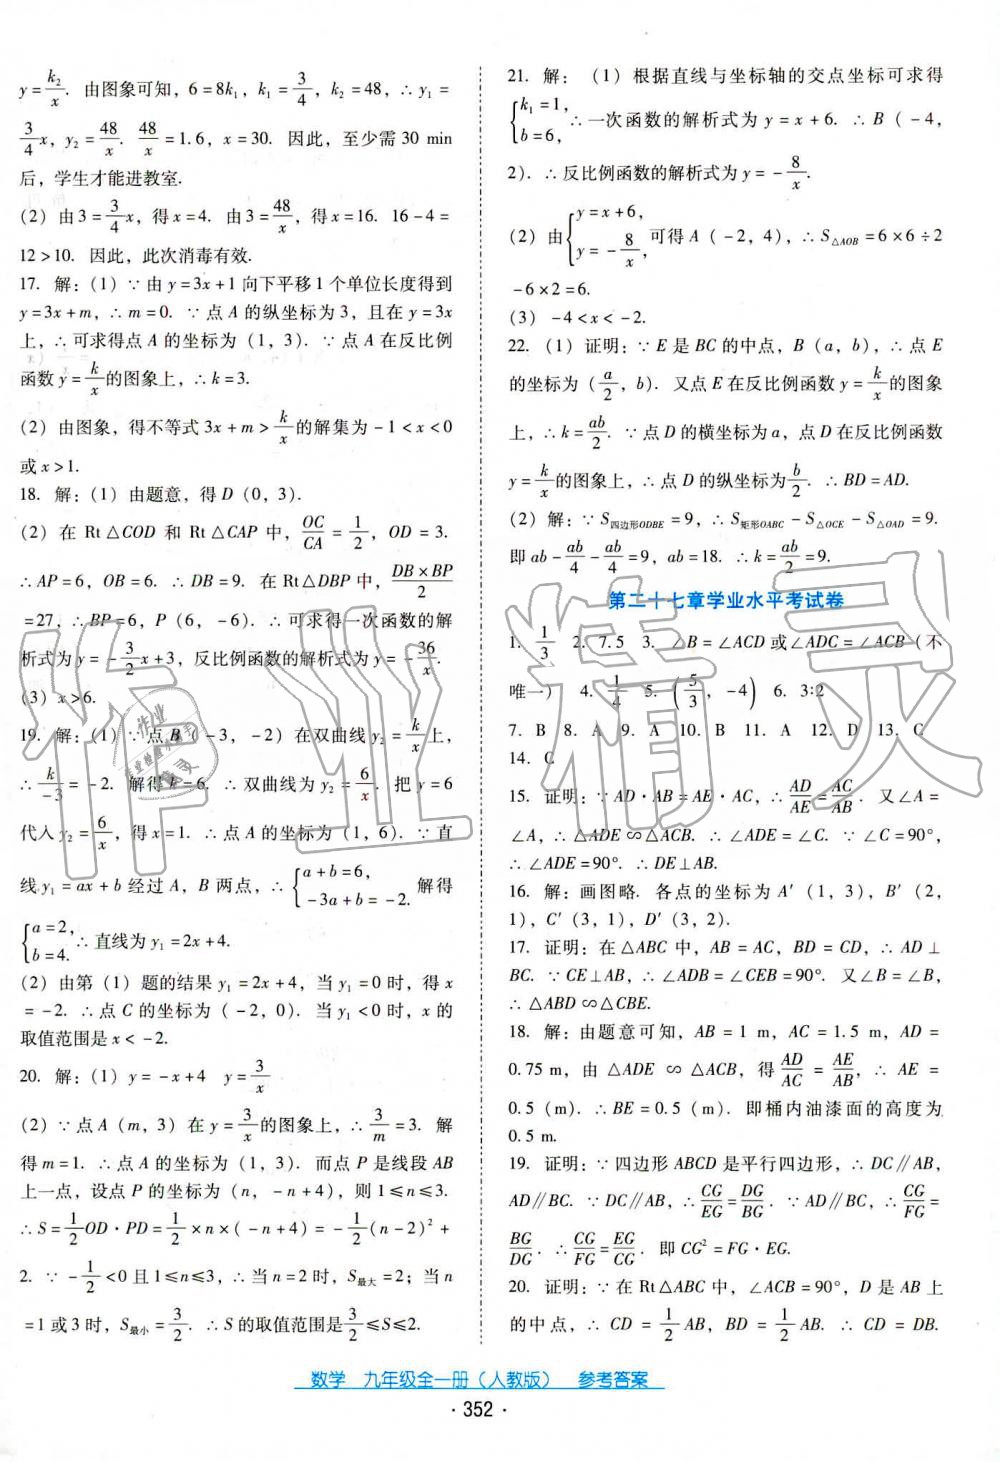 y=k₂/x. 由图象可知，6=8k₁，k₁=3/4，k₂=48，∴y₁=
3/4x，y₂=48/x. 48/x=1.6，x=30. 因此，至少需 30 min
后，学生才能进教室.
(2) 由3=3/4x，得x=4. 由3=48/x，得x=16. 16-4=
12>10. 因此，此次消毒有效.
17. 解：(1) ∵由y=3x+1向下平移1个单位长度得到
y=3x+m，∴m=0. ∵点A的纵坐标为3，且在y=3x
上，∴可求得点A的坐标为（1，3）. ∵点A在反比例
函数y=k/x的图象上，∴k=3.
(2) 由图象，得不等式3x+m>k/x的解集为-1<x<0
或x>1.
18. 解：(1) 由题意，得D（0，3）.
(2) 在Rt△COD和Rt△CAP中，OC/CA=1/2，OD=3.
∴AP=6，OB=6. ∴DB=9. 在Rt△DBP中，DB×BP/2
=27，∴BP=6，P（6，-6）. ∴可求得一次函数的解
析式为y=-3/2x+3，反比例函数的解析式为y=-36/x.
(3) x>6.
19. 解：(1) ∵点B（-3，-2）在双曲线y₂=k/x上，
∴k/-3=-2. 解得k=6. ∴双曲线为y₂=6/x. 把y=6
代入y₂=6/x，得x=1. ∴点A的坐标为（1，6）. ∵直
线y₁=ax+b经过A，B两点，∴{a+b=6，-3a+b=-2. 解得
{a=2，b=4. ∴直线为y₁=2x+4.
(2) 由第（1）题的结果y₁=2x+4，当y₁=0时，得x
=-2. ∴点C的坐标为（-2，0）. 当y₁<0时，x的
取值范围是x<-2.
20. 解：(1) y=-x+4 y=3/x
(2) ∵点A（m，3）在y=3/x的图象上，∴3/m=3. 解
得m=1. ∴点A的坐标为（1，3）. 而点P是线段AB
上一点，设点P的坐标为（n，-n+4），则1≤n≤3.
∴S=1/2OD·PD=1/2×n×(-n+4)=-1/2(n-2)²+
2. ∵-1/2<0且1≤n≤3，∴当n=2时，S最大=2；当n
=1或3时，S最小=3/2. ∴S的取值范围是3/2≤S≤2.
21. 解：(1) 根据直线与坐标轴的交点坐标可求得
{k₁=1，b=6，∴一次函数的解析式为y=x+6. ∴B（-4，
2）. ∴反比例函数的解析式为y=-8/x.
(2) 由{y=x+6，y=-8/x，可得A（-2，4），∴S△AOB=6×6÷2
-6×2=6.
(3) -4<x<-2.
22. (1) 证明：∵E是BC的中点，B（a，b），∴点E
的坐标为（a/2，b）. 又点E在反比例函数y=k/x的图象
上，∴k=ab/2. ∵点D的横坐标为a，点D在反比例函数
y=k/x的图象上，∴点D的纵坐标为b/2. ∴BD=AD.
(2) 解：∵S四边形ODBE=9，∴S矩形OABC-S△OCE-S△OAD=9.
即ab-ab/4-ab/4=9，ab=18. ∴k=ab/2=9.
第二十七章学业水平考试卷
1. 1/3 2. 7.5 3. ∠B=∠ACD或∠ADC=∠ACB（不
唯一） 4. 1/4 5. (5/3，-4) 6. 3∶2
7. B 8. A 9. A 10. B 11. A 12. D 13. C
14. C
15. 证明：∵AD·AB=AE·AC，∴AD/AE=AC/AB. 又∠A=
∠A，∴△ADE∽△ACB. ∴∠ADE=∠C. ∵∠C=90°，
∴∠ADE=90°. ∴DE⊥AB.
16. 解：画图略. 各点的坐标为A′（1，3），B′（2，
1），C′（3，1），D′（3，2）.
17. 证明：在△ABC中，AB=AC，BD=CD，∴AD⊥
BC. ∵CE⊥AB，∴∠ADB=∠CEB=90°. 又∠B=∠B，
∴△ABD∽△CBE.
18. 解：由题意可知，AB=1 m，AC=1.5 m，AD=
0.75 m，由△ADE∽△ACB，得AD/AC=AE/AB. ∴AE=
0.5（m）. ∴BE=0.5（m）. 即桶内油漆面的高度为
0.5 m.
19. 证明：∵四边形ABCD是平行四边形，∴DC∥AB，
AD∥BC. ∵DC∥AB，∴CG/EG=DG/BG. ∵AD∥BC，∴CG/FG=
BG/DG. ∴CG/FG=EG/CG. 即CG²=FG·EG.
20. 证明：∵在Rt△ABC中，∠ACB=90°，D是AB上
的中点，∴CD=1/2AB，BD=1/2AB. ∴CD=DB.
数学 九年级全一册（人教版） 参考答案
·352·
作业精灵